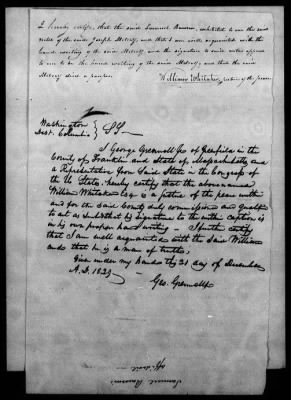 I hereby certify, that the said Samuel Bowman, exhibited to me the said
notes of the said Joseph Metcalf, and that I am well acquainted with the
hand writing of the said Metcalf, and the signature to said notes appear
to me to be the hand writing of the said Metcalf, and that the said
Metcalf died a pauper.
William Whitaker, justice of the peace
Washington
Dist. Columbia } SS
I George Grennell Jr of Greenfield in the
County of Franklin and State of Massachusetts and
a Representative from said State in the Congress of
the U States, hereby certify that the above named
William Whitaker Esq is a justice of the peace within
and for the said County duly commissioned and qualified
to act as such & that his signature to the within caption is
in his own proper hand writing - I further certify
that I am well acquainted with the said William
and that he is a man of truth,
Given under my hand this 21 day of December
A.D. 1829
Geo. Grennell Jr